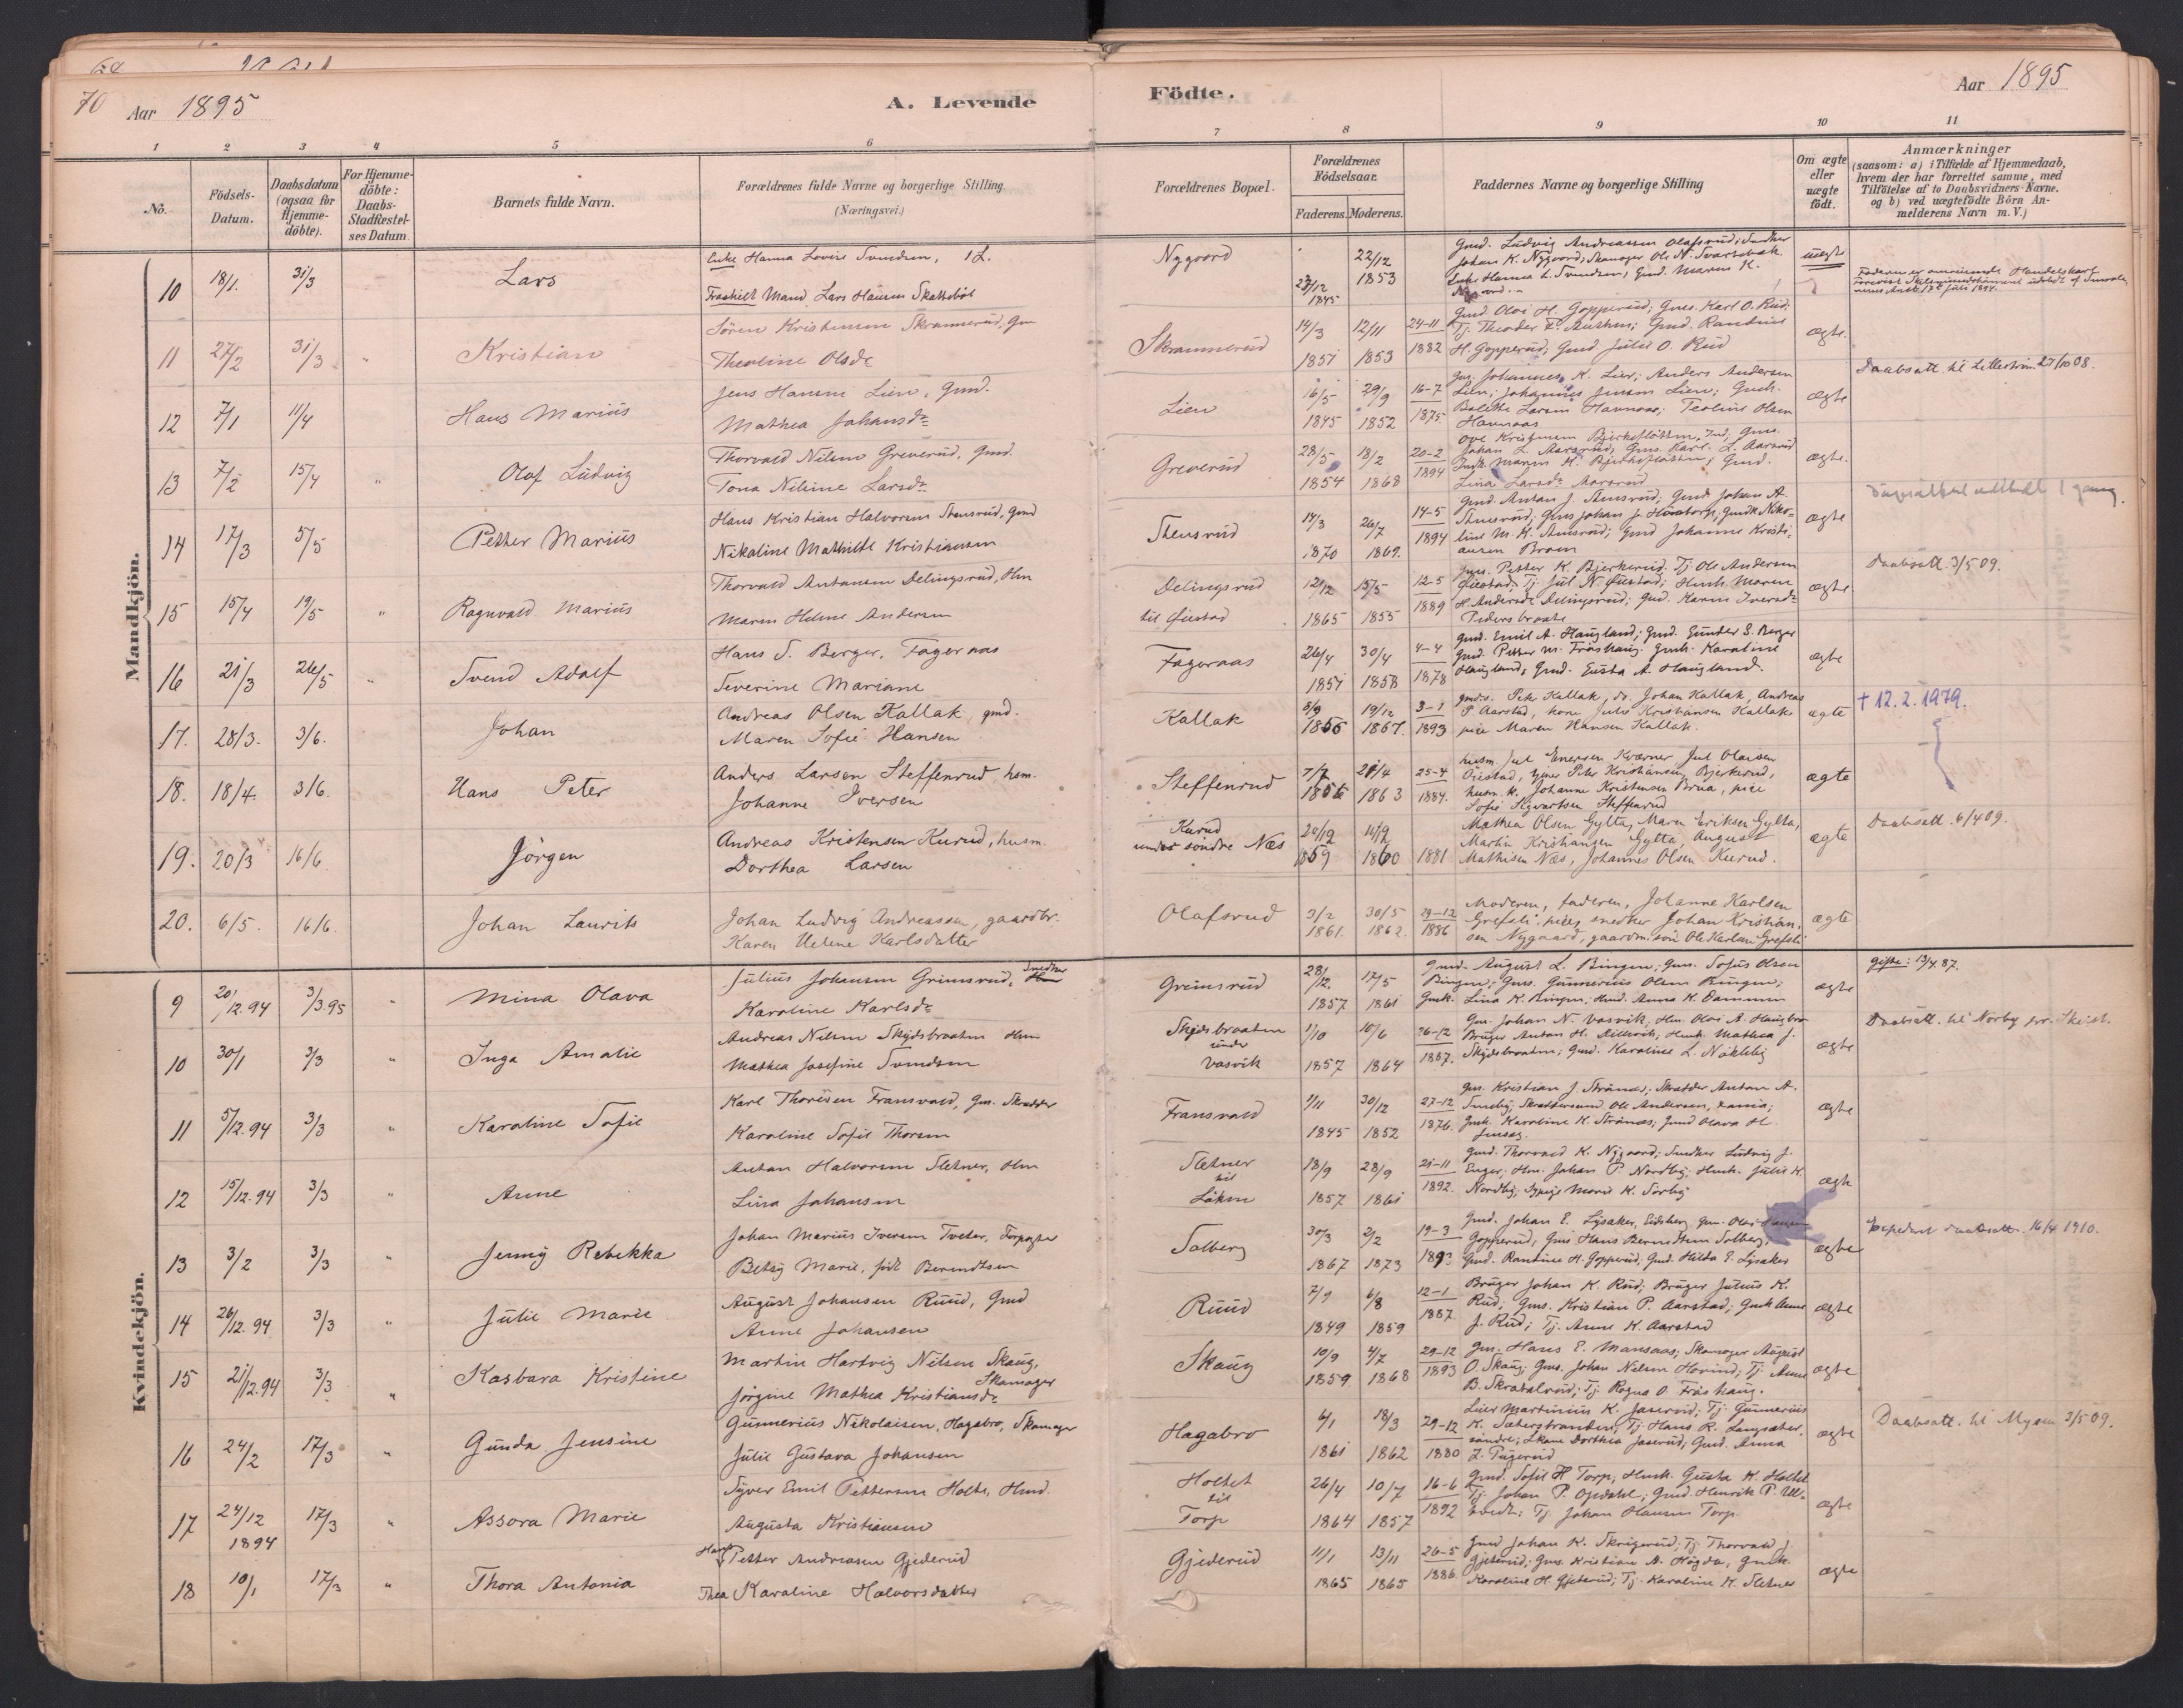 70
Aar 1895
A. Levende
Födte.
Aar 1895
1 2 3 4 5 6 7 8 9 10 11
No.
Födsels-Datum.
Daabsdatum (ogsaa for Hjemmedöbte).
For Hjemmedöbte: Daabs-Stadfæstelses Datum.
Barnets fulde Navn.
Forældrenes fulde Navne og borgerlige Stilling.
(Næringsvei.)
Forældrenes Bopæl.
Forældrenes Födselsaar.
Faderens. Moderens.
Faddernes Navne og borgerlige Stilling
Om ægte eller uægte födt.
Anmærkninger
(saasom: a) i Tilfælde af Hjemmedaab,
hvem der har forrettet samme, med
Tilföielse af to Daabsvidners Navne.
og b) ved uægtefödte Börn Anmelderens Navn m.V.)
Mandkjön.
10 18/1. 31/3 Lars
Enke Hanna Lovise Svendsen, I L.
Fraskilt Mand Lars Hansen
Nygaard 22/12 1853 27/12 1845
Gmd. Ludvig Andreassen Olafsrud; Snedker
Johan K. Nygoord; Skomager Ole N. Svartsbak
Enke Hanna L. Svendsen; Gmd. Maren K.
uægte
11 27/2 31/3 Kristian
Sören Kristensen Skrammerud, Gm
Theoline Olsdr
Skrammerud 14/3 1851 12/11 1853 24-11 1882
Gmd Olai H. Gopperud; Gms. Karl O. Rud;
H. Gopperud; Gmd Julie O. Rud
ægte.
12 7/1 11/4 Hans Marius
Jens Hansen Lien, Gmd.
Mathea Johansdr
Lien 16/5 1845 29/9 1852 16-7 1875
Gm. Johannes K. Lier; Anders Andersen
Lien; Johannes Jensen Lien; Gmk.
Larsen Havnaas; Teoline Olsen
Havnaas
ægte
Daabsatt. til Lilleström 27/10 08.
13 7/2 15/4 Olaf Ludvig
Thorvald Nilsen Greverud, Gmd.
Tona Niline Larsdr
Greverud 28/5 1854 18/2 1868 20-2 1894
Johan L. Aarsrud; Gms. Karl L. Aarsrud
Lina Larsdr Aarsrud
ægte.
14 17/3 5/5 Petter Marius
Hans Kristian Halvorsen Stensrud, Gmd
Nikoline Mathilde Kristiansen
Stensrud 14/3 1870 26/7 1869. 14-5 1894
Gmd. Anton J. Stensrud; Gmd Johan A.
line M. K. Stensrud; Gmd Johanne Kristiansen Broen
ægte
15 15/4 19/5 Ragnvald Marius
Thorvald Antonsen Delingsrud, Hm
Maren Helene Andersen
Delingsrud
til Öiestad 12/12 1865 15/5 1855 12-5 1889
Gms. Petter K. Bjerkerud; Tj. Ole Andersen
Öiestad; Tj. Jul. N. Öiestad; Hmk. Maren
H. Andersdr Delingsrud; Gmd. Karen Iversdr
Pedersbraate
ægte
Daabsatt. 3/5 09.
16 21/3 26/5 Svend Adolf
Hans S. Berger, Fageraas
Severine Mariane
Fageraas 26/4 1851 30/4 1858 4-4 1878
Gmd. Emil A. Haugland; Gmd. Gunder S. Berger
Gmd. Petter M. Fröshaug. Gmk. Karoline
Haugland; Gmd. Gusta A. Haugland.
ægte
17. 28/3. 3/6. Johan
Andreas Olsen Kallak, gmd.
Maren Sofie Hansen
Kallak 5/9 1856 19/12 1857. 3-1 1893
gmds. Petr Kallak, do. Johan Kallak, Andreas
P. Aarstad, kone Julie Kristiansen Kallak,
pige Maren Hansen Kallak.
ægte
+ 12.2.1979.
18. 18/4. 3/6. Hans Peter
Anders Larsen Steffenrud, hsm.
Johanne Iversen
Steffenrud 7/7 1856 21/4 1863 25-4 1884.
husm. Jul Enersen Kværner, Jul Olaisen
Öiestad, tjener Peter Kristiansen Bjerkerud,
husm. k. Johanne Kristensen Brua, pige
Sofie Steffenrud
ægte
19. 20/3 16/6 Jörgen
Andreas Kristensen Kurud, husm.
Dorthea Larsen
Kurud
under söndre Næs 20/12 1859 11/9 1860 1881
Mathea Olsen Gylta, Maren Eriksen Gylta,
Martin Kristiansen Gylta, August
Mathisen Næs, Johannes Olsen Kurud.
ægte
Daabsatt. 6/4 09.
20. 6/5. 16/6. Johan Laurits
Johan Ludvig Andreassen, gaardbr.
Karen Helene Karlsdatter
Olafsrud 3/2 1861. 30/5 1862. 29-12 1886
Moderen, faderen, Johanne Karlsen
Grefsli, pige, snedker Johan Kristiansen Nygaard, gaardm.sön Ole Karlsen Grefsli
ægte
Kvindekjön.
9 20/12.94 3/3.95 Mina Olava
Julius Johansen Grimsrud, Snedker
Karoline Karlsdr
Grimsrud 28/12. 1857 17/5 1861
Gmd. August L. Bingen; Gms. Sofus Olsen
Bingen; Gms. Gunnerius Olsen Bingen;
Gmk. Lina K. Bingen; Hmd. Anna K. Dammen
ægte
Gifte: 13/4. 87.
10 30/1 3/3 Inga Amalie
Andreas Nilsen Skydsbraaten Hm
Mathea Josefine Svendsen
Skydsbraaten
under
Vasvik 1/10 1857 10/6 1864 26-12 1887.
Gm. Johan N. Vasvik; Hm. Olai A. Haugbro
Skydsbraaten; Gmd. Karoline L. Nökleby
ægte
11 5/12.94 3/3 Karoline Sofie
Karl Thoresen Fransvald, Gm. Skrædder
Karoline Sofie Thorsen
Fransvald 1/11 1845 30/12 1852 27-12 1876.
Gm. Kristian J. Strönes; Skrædder Anton A.
Gmk. Karoline K. Strönæs; Gmd Olava H.
ægte
12 15/12.94 3/3 Anne
Anton Halvorsen Sletner, Hm
Lina Johansen
Sletner
til
Löken 18/9 1857 28/9 1861 21-11 1892.
Gmd. Thorvald K. Nygaard; Snedker Ludvig J.
Enger. Hm. Johan P. Nordby; Hmk. Julie K.
Nordby; Sypige Marie K. Sörby
ægte
13 3/2 3/3 Jenny Rebekka
Johan Marius Iversen Tveter, Forpagter
Betsy Marie, född Berendtsen
Solberg 30/3 1867 2/2 1873 19-3 1893
Gmd. Johan E. Lysaker, Eidsberg. Gm. Olai
Gopperud; Gms Hans Berndtsen Solberg;
Gmd. Randine H. Gopperud; Gmd. Hilda E. Lysaker
ægte
Expedert daabsatt. 16/4 1910.
14 26/12.94 3/3 Julie Marie
August Johansen Ruud, Gmd
Anne Johansen
Ruud 7/9 1849 6/8 1859 12-1 1887
Bruger Johan K. Rud; Bruger Julius K.
Rud; Gms. Kristian P. Aarstad; Gmk Anne
J. Rud; Tj. Anne K. Aarstad
ægte
15 21/12.94 3/3 Kasbara Kristine
Martin Hartvig Nilsen Skaug, Skomager
Jörgine Mathea Kristiansdr
Skaug 10/9 1859. 4/7 1868 29-12 1893
Gm. Hans E. Mansaas; Skomager August
O. Skaug; Gms. Johan Nilsen Hovind; Tj. Anne
B. Skrabalrud; Tj. Ragna O. Fröshaug.
ægte
16 24/2 17/3 Gunda Jensine
Gunnerius Nikolaisen, Hagabro, Skomager
Julie Gustava Johansen
Hagabro 6/1 1861 18/3 1862 29-12 1880
Lier Martinius K. Jaserud; Tj. Gunnerius
K. Sæterstranden; Tj. Hans R. Langsæter,
söndre; Dorthea Jaserud; Gmd. Anna
ægte
Daabsatt. til Mysen 3/5 09.
17 24/12 1894 17/3 Assora Marie
Syver Emil Pettersen Holte, Hmd.
Augusta Kristiansen
Holtet
til
Torp 26/4 1864 10/7 1857 16-6 1892
Gmd. Sofie H Torp; Hmk. Gusta K. Holtet
Tj. Johan P. Opdahl; Gmd. Henrik P. Ulltvedt; Tj. Johan Hansen Torp.
ægte
18 10/1 17/3 Thora Antonia
Hans Petter Andreasen Gjederud
Thea Karoline Halvorsdatter
Gjederud 11/1 1865 13/11 1865 26-5 1886.
Gmd Johan K. Skrigerud; Tj. Thorvald J.
Gjeterud; Gms. Kristian A. Högda, Gmk.
Karoline H. Gjeterud; Tj. Karoline K. Sletner
ægte